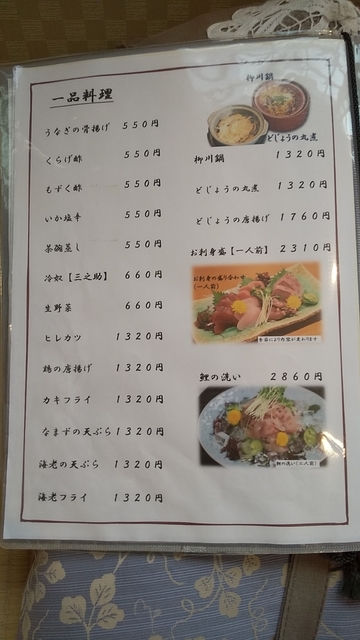 一品料理
うなぎの骨揚げ 550円
くらげ酢 550円
もずく酢 550円
いか塩辛 550円
茶碗蒸し 550円
冷奴【三之助】 660円
生野菜 660円
ヒレカツ 1320円
鶏の唐揚げ 1320円
カキフライ 1320円
なまずの天ぷら 1320円
海老の天ぷら 1320円
海老フライ 1320円
柳川鍋
どじょうの丸煮
柳川鍋 1320円
どじょうの丸煮 1320円
どじょうの唐揚げ 1760円
お刺身盛【一人前】 2310円
お刺身の盛り合わせ
(一人前)
季節により内容が異なります
鯉の洗い 2860円
鯉の洗い(二人前)